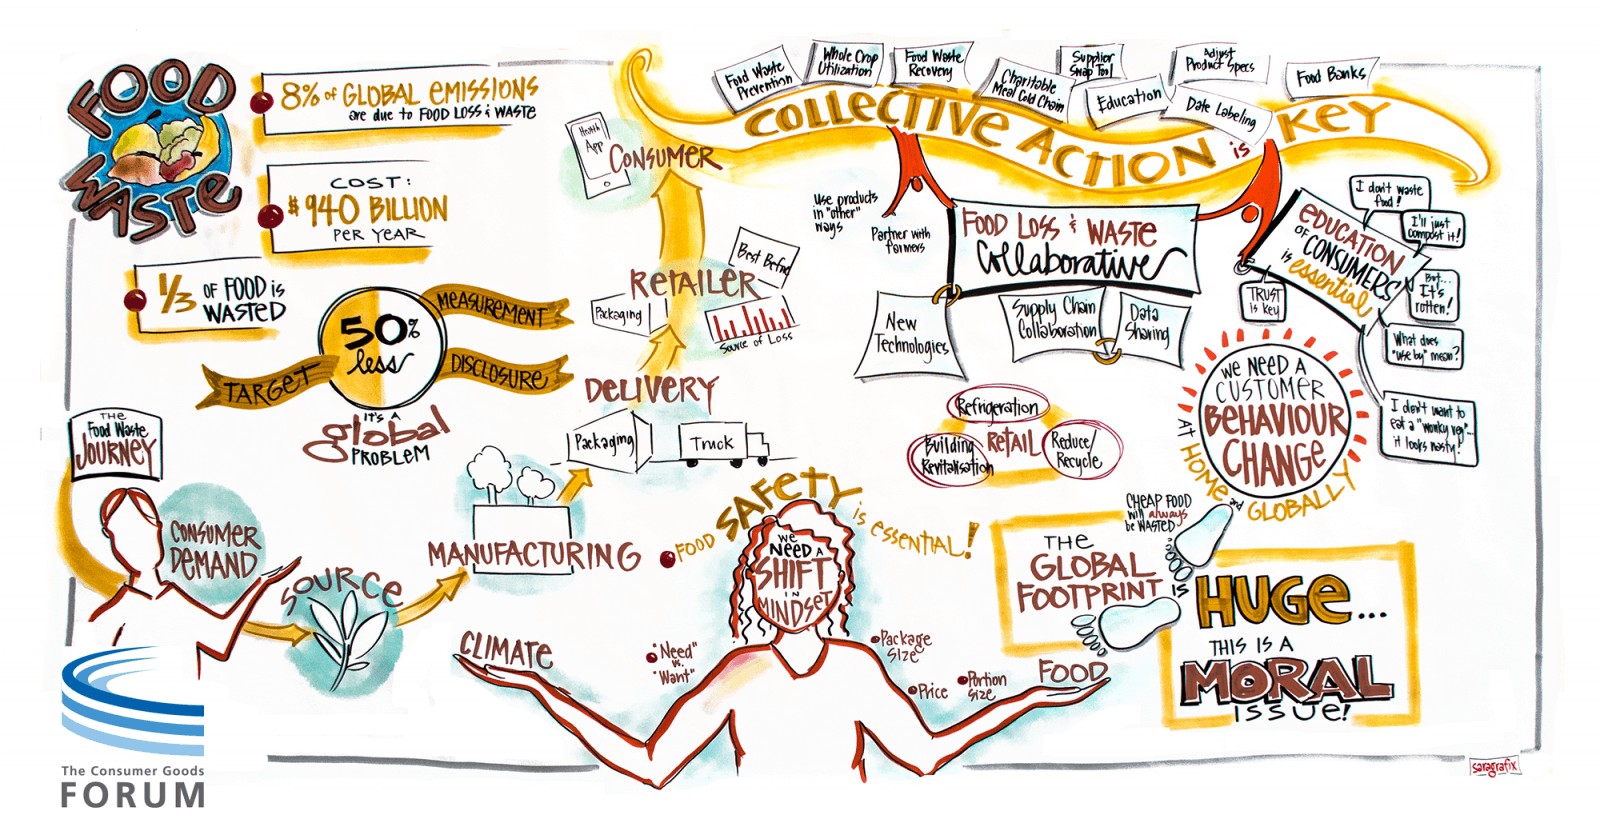 FOOD
WASTE
8% of GLOBAL EMISSIONS
are due to FOOD LOSS & WASTE
COST:
$940 BILLION
PER YEAR
1/3 OF FOOD IS
WASTED
50%
less
MEASUREMENT
TARGET
DISCLOSURE
IT'S A
global
PROBLEM
THE
Food Waste
JOURNEY
CONSUMER
DEMAND
SOURCE
MANUFACTURING
Packaging
Truck
DELIVERY
Packaging
RETAILER
Best Before
Source of Loss
Health
App
CONSUMER
Food Waste
Prevention
Whole Crop
Utilization
Food Waste
Recovery
Charitable
Meal Cold Chain
Supplier
Swap Tool
Education
Adjust
Product Specs
Date Labeling
Food Banks
COLLECTIVE ACTION is KEY
Use products
in "other"
ways
Partner with
farmers
FOOD LOSS & WASTE
Collaborative
New
Technologies
Supply Chain
Collaboration
Data
Sharing
EDUCATION
OF CONSUMERS
is essential
I don't waste
food!
I'll just
compost it!
But...
It's
rotten!
What does
"use by" mean?
I don't want to
eat a "wonky veg"...
it looks nasty!
TRUST
is key
WE NEED A
CUSTOMER
BEHAVIOUR
CHANGE
AT HOME and GLOBALLY
Refrigeration
Building
Revitalisation
RETAIL
Reduce/
Recycle
FOOD SAFETY is ESSENTIAL!
WE
NEED A
SHIFT
IN
MINDSET
CLIMATE
"Need"
vs.
"Want"
Package
Size
Price
Portion
Size
FOOD
CHEAP FOOD
will always
be WASTED
THE
GLOBAL
FOOTPRINT IS
HUGE...
THIS IS A
MORAL
ISSUE!
saragrafix
The Consumer Goods
FORUM